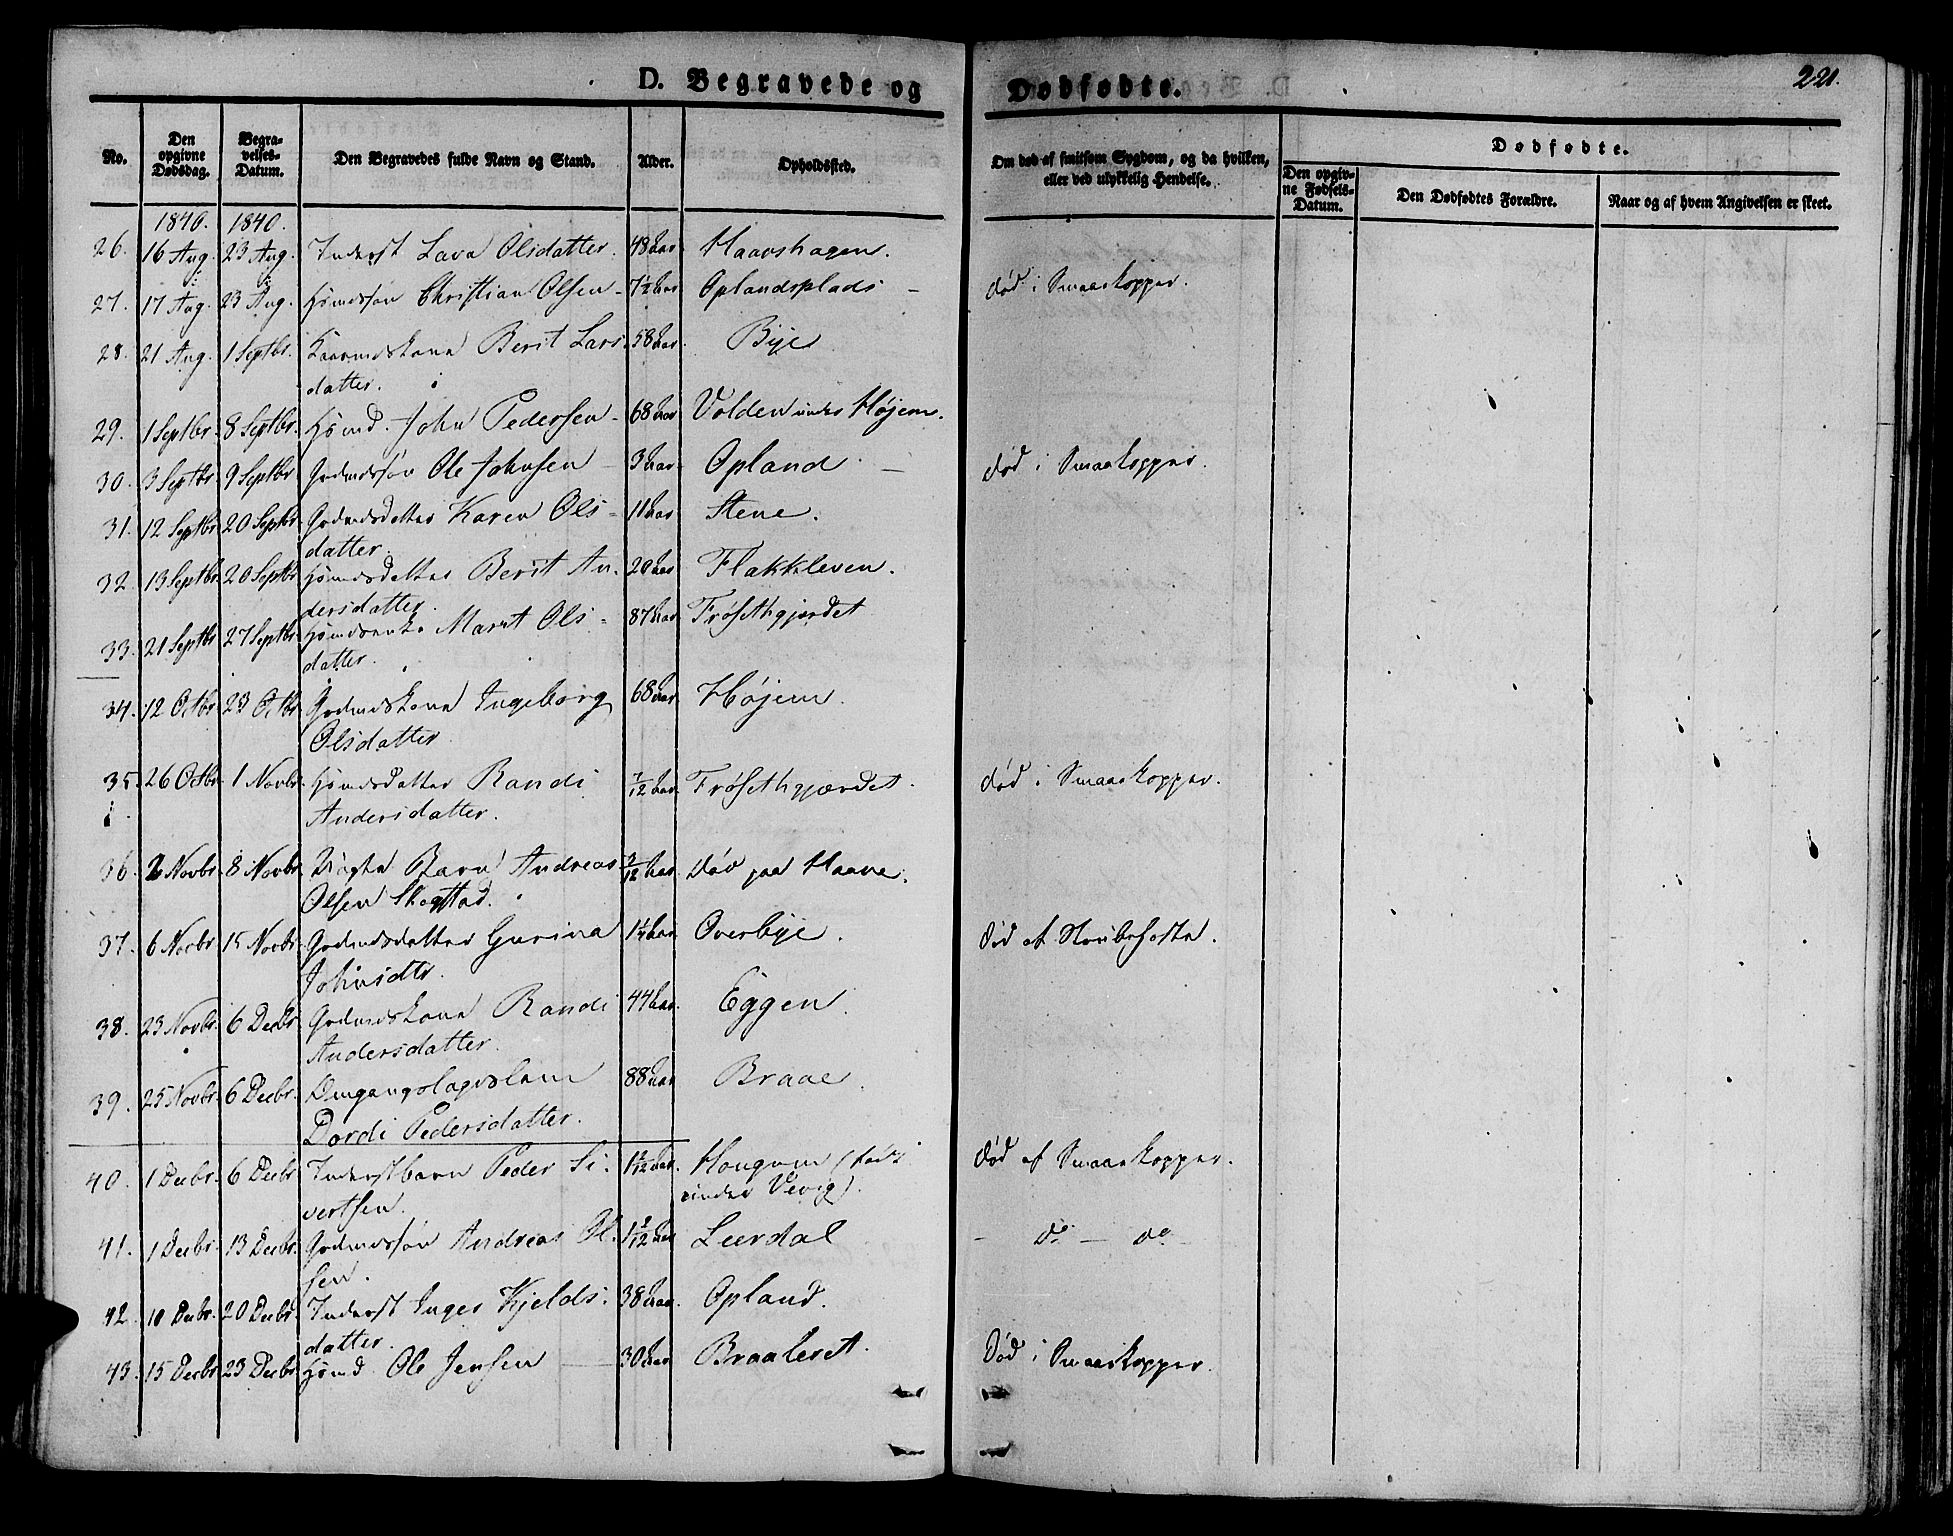 D. Begravede og Dødfødte.
221.
No. Den opgivne Dødsdag. Begravelses-Datum. Den Begravedes fulde Navn og Stand. Alder. Opholdssted. Om død af smitsom Sygdom, og da hvilken, eller ved ulykkelig Hendelse. Dødfødte.
Den opgivne Fødsels-Datum. Den Dødfødtes Forældre. Naar og af hvem Angivelsen er skeet.
1840. 1840.
26. 16 Aug. 23 Aug. Inderst Lava Olsdatter. 48 Aar Haavshagen.
27. 17 Aug. 23 Aug. Hsmdssøn Christian Olsen - 7½ Aar Oplandsplads - død i Smaaekopper.
28. 21 Aug. 1 Septbr. Kaarmdskone Berit Lars- 58 Aar Bye
datter.
29. 1 Septbr. 8 Septbr. Hsmd. John Pedersen - 68 Aar Volden under Højem.
30. 3 Septbr 9 Septbr Grdmdssøn Ole Johnsen - 3 Aar Opland - død i Smaaekopper.
31. 12 Septbr 20 Septbr. Grdmdsdatter Karen Ols- 11 Aar Stene.
datter.
32. 13 Septbr 20 Septbr Hsmdsdatter Berit An- 20 Aar Flakkleven.
dersdatter.
33. 21 Septbr 27 Septbr. Hsmdsenke Marit Ols- 87 Aar Frøsethgjerdet
datter.
34. 12 Octbr. 23 Octbr Grdmdskone Ingeborg 68 Aar. Højem.
Olsdatter.
35. 26 Octbr 1 Novbr. Hsmdsdatter Randi 7/12 Aar. Frøsethgjærdet. død i Smaaekopper.
Andersdatter.
36. 2 Novbr. 8 Novbr. Uægte Barn Andreas /12 Aar Død paa Haave.
Olsen Skogstad.
37. 6 Novbr 15 Novbr. Grdmdsdatter Gurina 1¼ Aar Overbye. død af Strubehoste.
Johnsdtr.
38. 23 Novbr. 6 Decbr. Grdmdskone Randi 44 Aar. Eggen
Andersdatter.
39. 25 Novbr. 6 Decbr. Omgangslagdslem 88 Aar Braae.
Dordi Pedersdatter.
40. 1 Decbr. 6 Decbr Inderstbarn Peder Si- 1 /12 Aar. Hougum (død
under Vevig). død af Smaaekopper.
vertsen.
41. 1 Decbr. 13 Decbr. Grdmdssøn Andreas Ol- 1 /12 Aar Leerdal - do - do -
sen.
42. 10 Decbr. 20 Decbr. Inderst Inger Kjelds- 38 Aar. Opland.
datter.
43. 15 Decbr 23 Decbr Hsmd Ole Jensen - 30 Aar Braaleret. død i Smaaekopper.